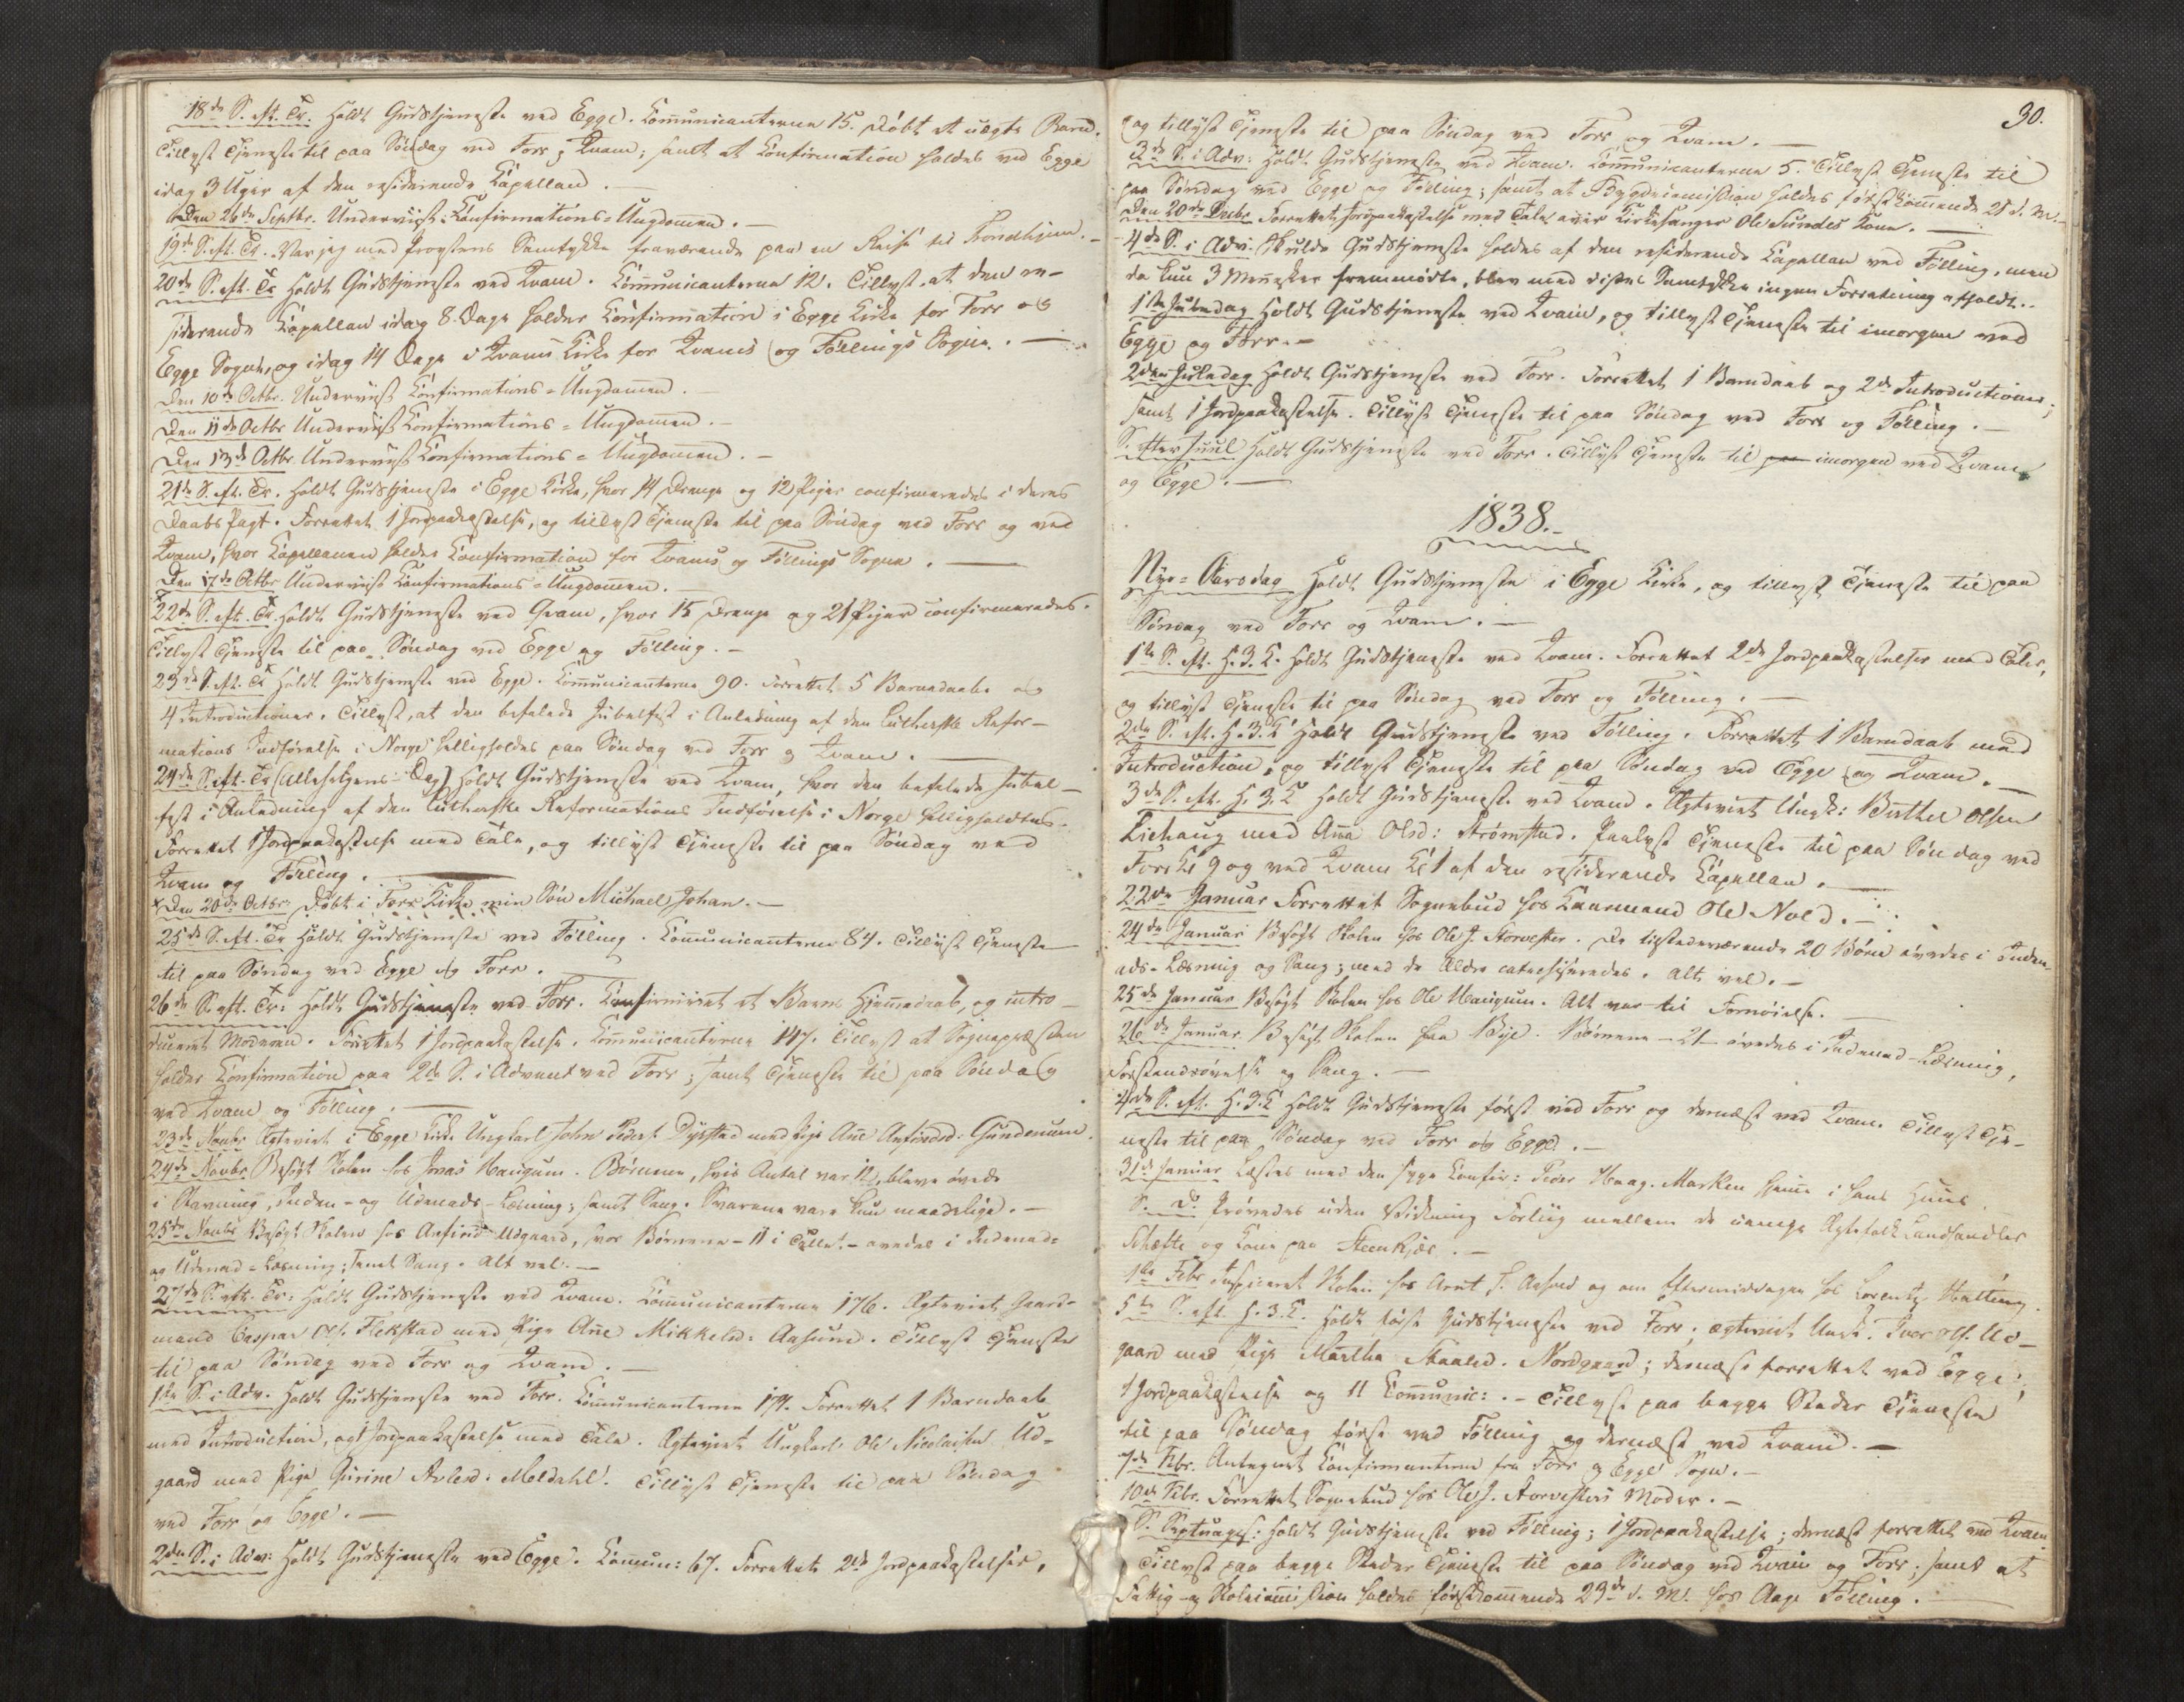 18de S. eft. Tr. Holdt Gudstjeneste ved Egge. Communicanterne 15. Døbt et uægte Barn.
Tillyst Tjeneste til paa Søndag ved Forr og Qvam; samt at Confirmation holdes ved Egge
idag 3 Uger af den residerende Kapellan. —
Den 26de Septbr. Underviist Confirmations-Ungdommen. —
19de S. eft. Tr. Var jeg med Provstens Samtykke fraværende paa en Reise til Trondhjem. —
20de S. eft. Tr. Holdt Gudstjeneste ved Qvam. Communicanterne 12. Tillyst, at den re-
siderende Kapellan idag 8 Dage holder Confirmation i Egge Kirke for Forr og
Egge Sogne, og idag 14 Dage i Qvams Kirke for Qvams og Føllings Sogne. —
Den 10de Octbr. Underviist Confirmations-Ungdommen.
Den 11de Octbr Underviist Confirmations-Ungdommen. —
Den 13de Octbr. Underviist Confirmations-Ungdommen. —
21de S. eft. Tr. Holdt Gudstjeneste i Egge Kirke, hvor 14 Drenge og 12 Piger confirmeredes i deres
Daabs Pagt. Forrettet 1 Jordpaakastelse, og tillyst Tjeneste til paa Søndag ved Forr og ved
Qvam, hvor Capellanen holder Confirmation for Qvams og Føllings Sogne. —
Den 17de Octbr Underviist Confirmations-Ungdommen.
22de S. eft. Tr. Holdt Gudstjeneste ved Qvam, hvor 15 Drenge og 21 Piger confirmeredes.
Tillyst Tjeneste til paa Søndag ved Egge og Følling. —
23de S. eft. Tr. Holdt Gudstjeneste ved Egge. Communicanterne 90. Forrettet 5 Barnedaabe og
4 Introductioner. Tillyst, at den befalede Jubelfest i Anledning af den lutherske Refor-
mations Indførelse i Norge helligholdes paa Søndag ved Forr og Qvam. —
24de S. eft. Tr. (Allehelgens-Dag) Holdt Gudstjeneste ved Qvam, hvor den befalede Jubel-
fest i Anledning af den lutherske Reformations Indførelse i Norge helligholdtes.
Forrettet 1 Jordpaakastelse med Tale, og tillyst Tjeneste til paa Søndag ved
Qvam og Følling. —
x Den 20de Octbr. Døbt i Forr Kirke min Søn Michael Johan. —
25de S. eft. Tr. Holdt Gudstjeneste ved Følling. Communicanterne 84. Tillyst Tjeneste
til paa Søndag ved Egge og Forr. —
26de S. eft. Tr: Holdt Gudstjeneste ved Forr. Confirmeret et Barns Hjemmedaab, og intro-
duceret Moderen. Forrettet 1 Jordpaakastelse. Communicanterne 147. Tillyst at Sognepræsten
holder Confirmation paa 2de S. i Advent ved Forr; samt Tjeneste til paa Søndag
ved Qvam og Følling. —
23de Novbr Ægteviet i Egge Kirke Ungkarl John Peders. Dyrstad med Pige Ane Anfindsd: Gundenum.
24de Novbr. Besøgt Skolen hos Jonas Haugum. Børnene, hvis Antal var 12, bleve øvede
i Stavning, Inden- og Udenads-Læsning; samt Sang. Svarene vare kun maadelige. —
25de Novbr Besøgt Skolen hos Anfind Udgaard, hvor Børnene - 11 i Tallet - øvedes i Indenad-
og Udenad-Læsning; samt Sang. Alt vel. —
27de S. eft. Tr: Holdt Gudstjeneste ved Qvam. Communicanterne 176. Ægteviet Gaard-
mand Caspar Ols. Flekstad med Pige Ane Mikkelsd: Aasum. Tillyst Tjeneste
til paa Søndag ved Forr og Qvam. —
1ste S. i Adv. Holdt Gudstjeneste ved Forr. Communicanterne 174. Forrettet 1 Barnedaab
med Introduction, og 1 Jordpaakastelse med Tale. Ægteviet Ungkarl Ole Nicolaisen Ud-
gaard med Pige Gurine Arlesd: Meldahl. Tillyst Tjeneste til paa Søndag
ved Forr og Egge. —
2den S. i Adv: Holdt Gudstjeneste ved Egge. Commun: 67. Forrettet 2de Jordpaakastelser,
30.
og tillyst Tjeneste til paa Søndag ved Forr og Qvam. —
3de S. i Adv: Holdt Gudstjeneste ved Qvam. Communicanterne 5. Tillyst Tjeneste til
paa Søndag ved Egge og Følling; samt at Bygdecommission holdes førstkommende 21 d. M. —
Den 20de Decbr Forrettet Jordpaakastelse med Tale over Kirkesanger Ole Sundes Kone. —
4de S. i Adv. Skulde Gudstjeneste holdes af den residerende Kapellan ved Følling, men
da kun 3 Mennesker fremmødte, blev med disses Samtykke ingen Forretning afholdt. -
1ste Juledag Holdt Gudstjeneste ved Qvam, og tillyst Tjeneste til imorgen ved
Egge og Forr. —
2den Juledag Holdt Gudstjeneste ved Forr. Forrettet 1 Barnedaab og 2de Introductioner;
samt 1 Jordpaakastelse. Tillyst Tjeneste til paa Søndag ved Forr og Følling. —
S. efter Juul Holdt Gudstjeneste ved Forr. Tillyst Tjeneste til paa imorgen ved Qvam
og Egge. —
1838. -
Nyt-Aarsdag Holdt Gudstjeneste i Egge Kirke, og tillyst Tjeneste til paa
Søndag ved Forr og Qvam. —
1ste S. eft. H. 3. K. Holdt Gudstjeneste ved Qvam. Forrettet 2de Jordpaakastelser med Taler,
og tillyst Tjeneste til paa Søndag ved Forr og Følling. —
2de S. eft. H. 3. K Holdt Gudstjeneste ved Følling. Forrettet 1 Barnedaab med
Introduction, og tillyst Tjeneste til paa Søndag ved Egge og Qvam. —
3de S. eft. H. 3. K Holdt Gudstjeneste ved Qvam. Ægteviet Ungk: Berthel Olsen
Liehaug med Ana Olsd: Strømstad. Paalyst Tjeneste til paa Søndag ved
Forr Kl 9 og ved Qvam Kl 1 af den residerende Kapellan. —
22de Januar Forrettet Sognebud hos Kaarmand Ole Nold. —
24de Januar Besøgt Skolen hos Ole J. Storvester. De tilstedeværende 20 Børn øvedes i Inden-
ads-Læsning og Sang; med de Ældre catechiseredes. Alt vel. —
25de Januar Besøgt Skolen hos Ole Haugum. Alt var til Fornøielse. —
26de Januar Besøgt Skolen paa Bye. Børnene - 21 - øvedes i Indenad-Læsning,
Forstandsøvelse og Sang. —
4de S. eft. H. 3. K Holdt Gudstjeneste først ved Forr og dernæst ved Qvam. Tillyst Tje-
neste til paa Søndag ved Forr og Egge. —
31te Januar Læstes med den syge Confir: Peder Haag. Marken hjemme i hans Huus.
S. D. Prøvedes uden Virkning Forliig mellem de uenige Ægtefolk Landhandler
Schefte og Kone paa Steenkjær. —
1ste Febr Inspiceret Skolen hos Arnt J. Aasud og om Eftermiddagen hos Lorentz Halling.
5te S. eft. H. 3. K. Holdt først Gudstjeneste ved Forr; ægteviet Ungk. Iver Ols. Ud-
gaard med Pige Martha Staalesd. Nordgaard; dernæst forrettet ved Egge;
1 Jordpaakastelse og 11 Communic: . - Tillyst paa begge Steder Tjeneste
til paa Søndag først ved Følling og dernæst ved Qvam. —
7de Febr. Antegnet Confirmanterne fra Forr og Egge Sogn. —
10de Febr. Forrettet Sognebud hos Ole J. Storvesters Moder. —
S. Septuages: Holdt Gudstjeneste ved Følling; 1 Jordpaakastelse; dernæst forrettet ved Qvam
Tillyst paa begge Steder Tjeneste til paa Søndag ved Qvam og Forr; samt at
Fattig- og Skolecommission holdes førstkommende 23de d. M. hos Aage Følling. —